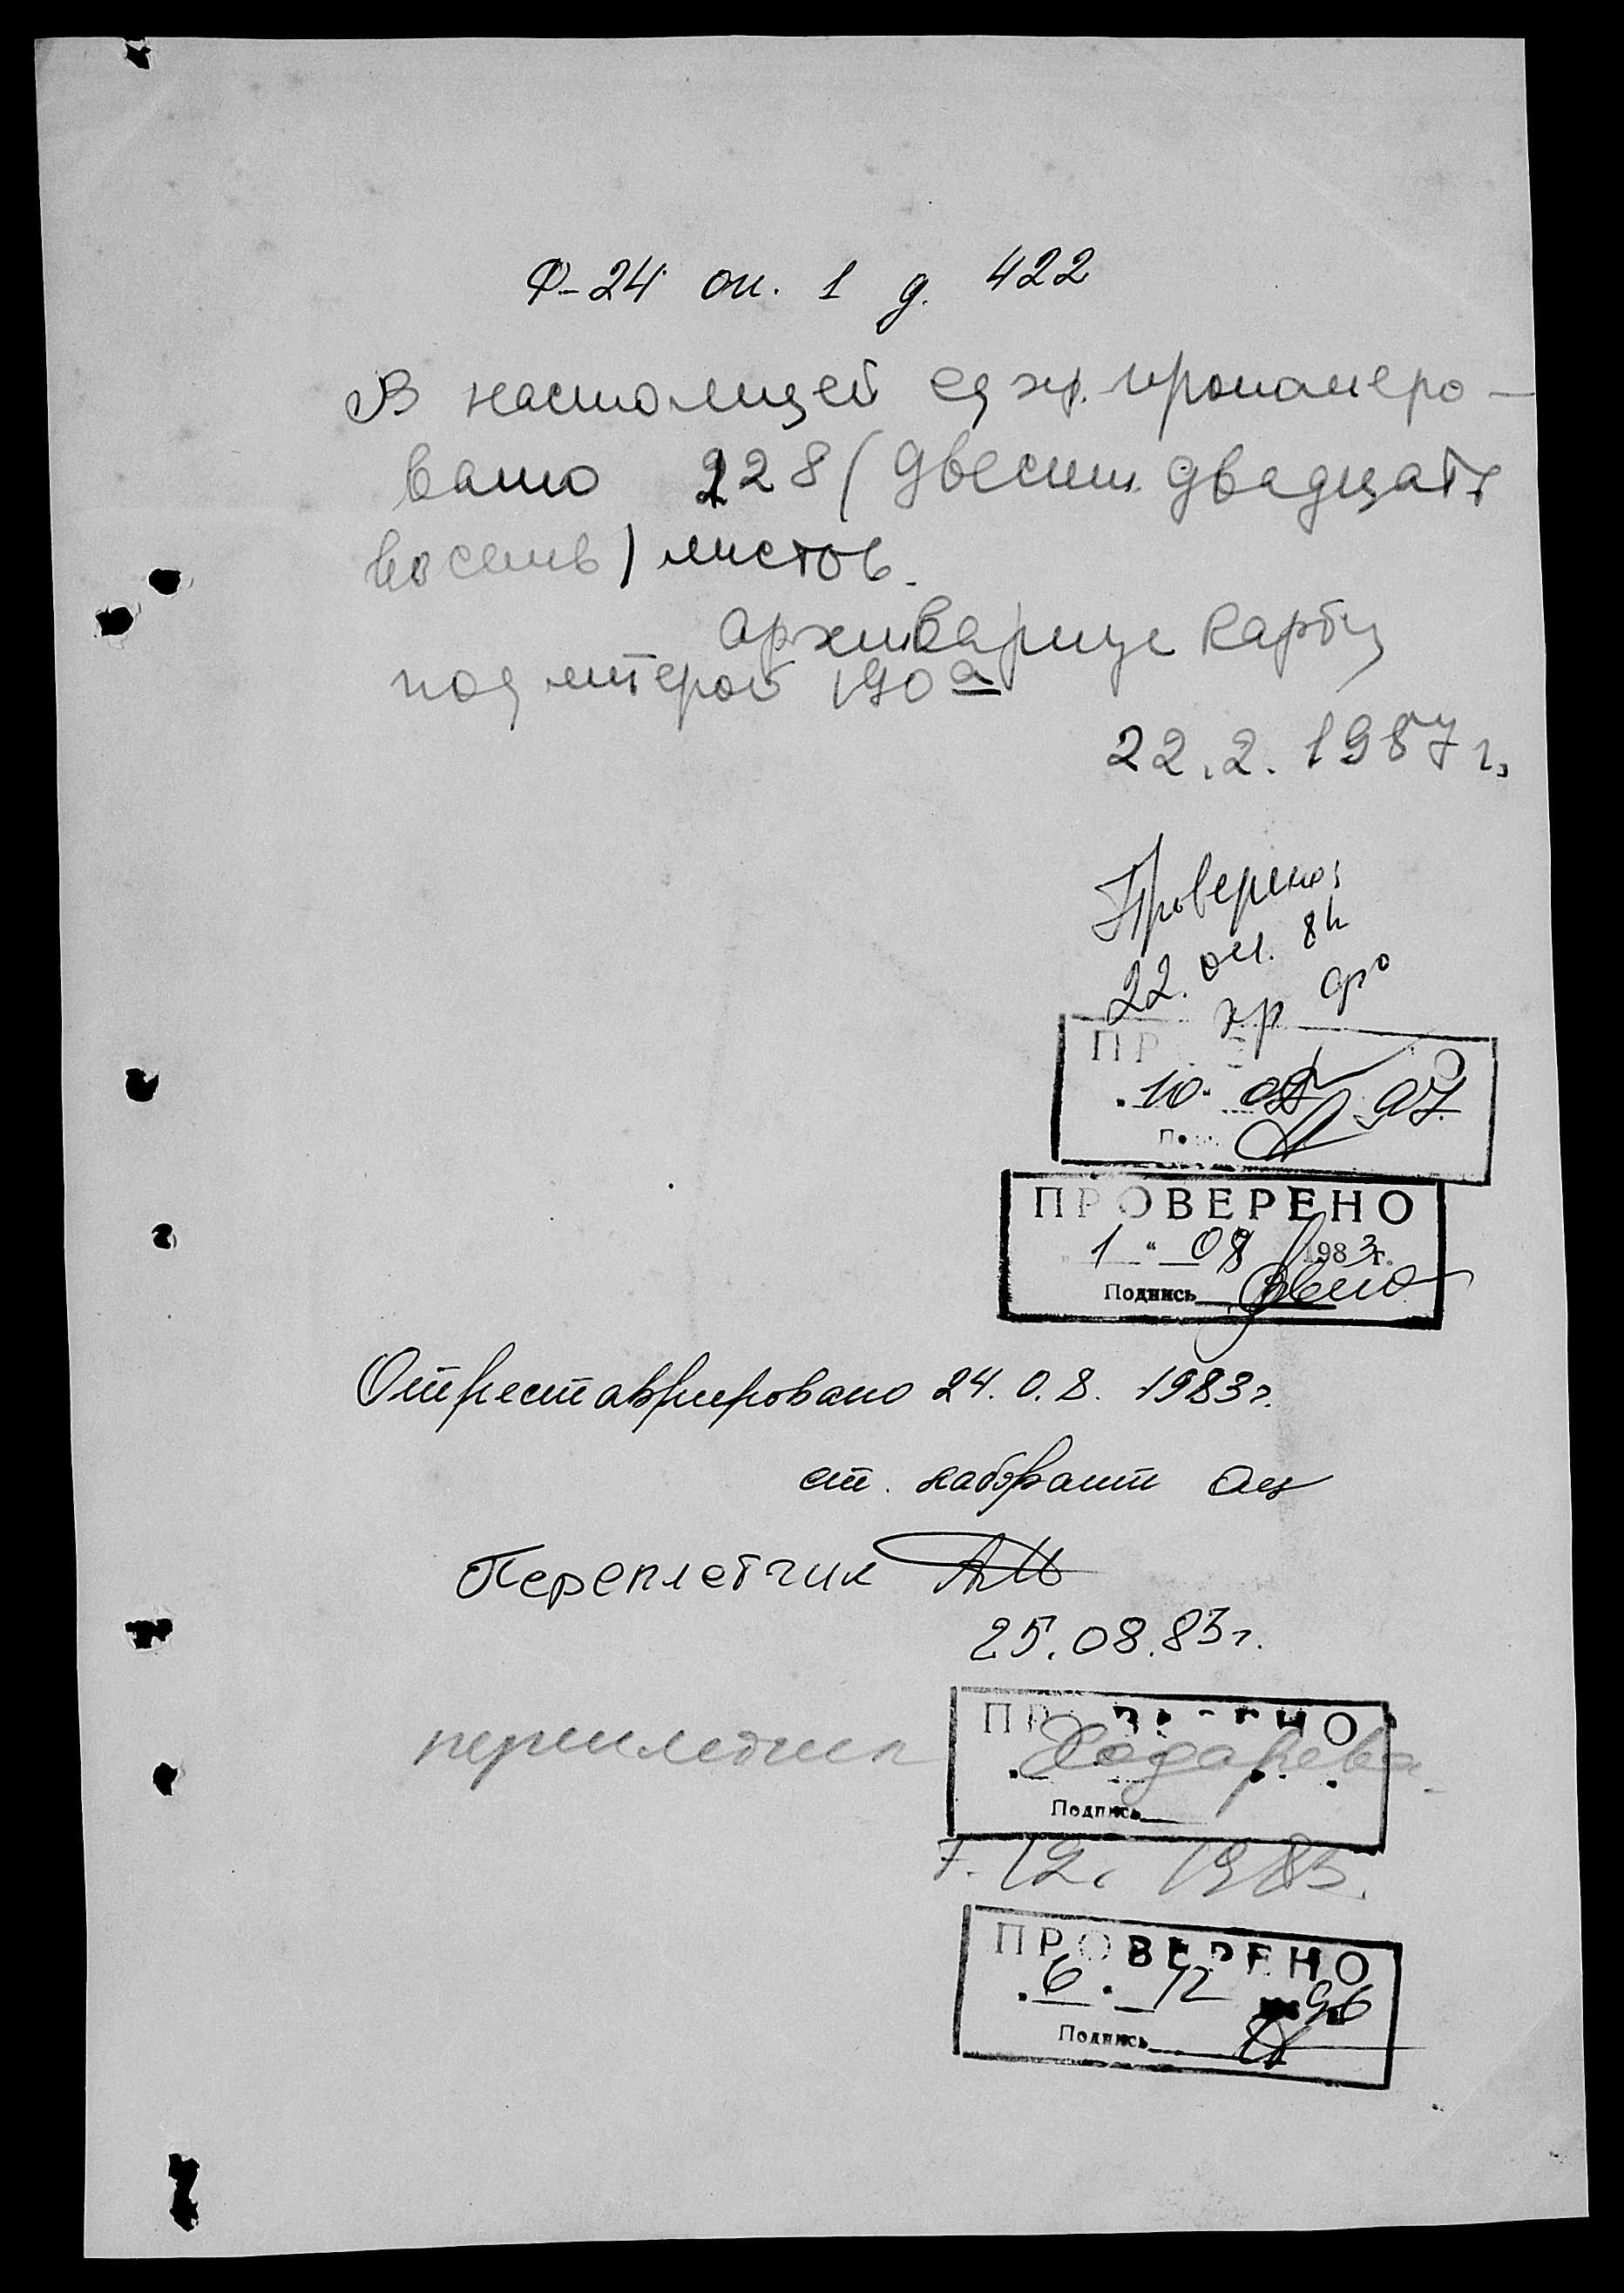 Ф-24 оп. 1 д. 422
В настоящей ед хр. пронумеро-
вано 228 (двести двадцать
восемь) листов.
архивариус
под литерой 190а
22.2. 1987 г.
Проверено
22. 84
ПР О
"10" 97
ПРОВЕРЕНО
1 " 08 1983г.
Подпись
Отреставрировано 24.0.8. 1983г.
ст. лаборант
Переплетчик
25.08.83г.
переплетчик
Подпись
7. 12. 1983.
ПРОВЕРЕНО
"6" 12 96
Подпись